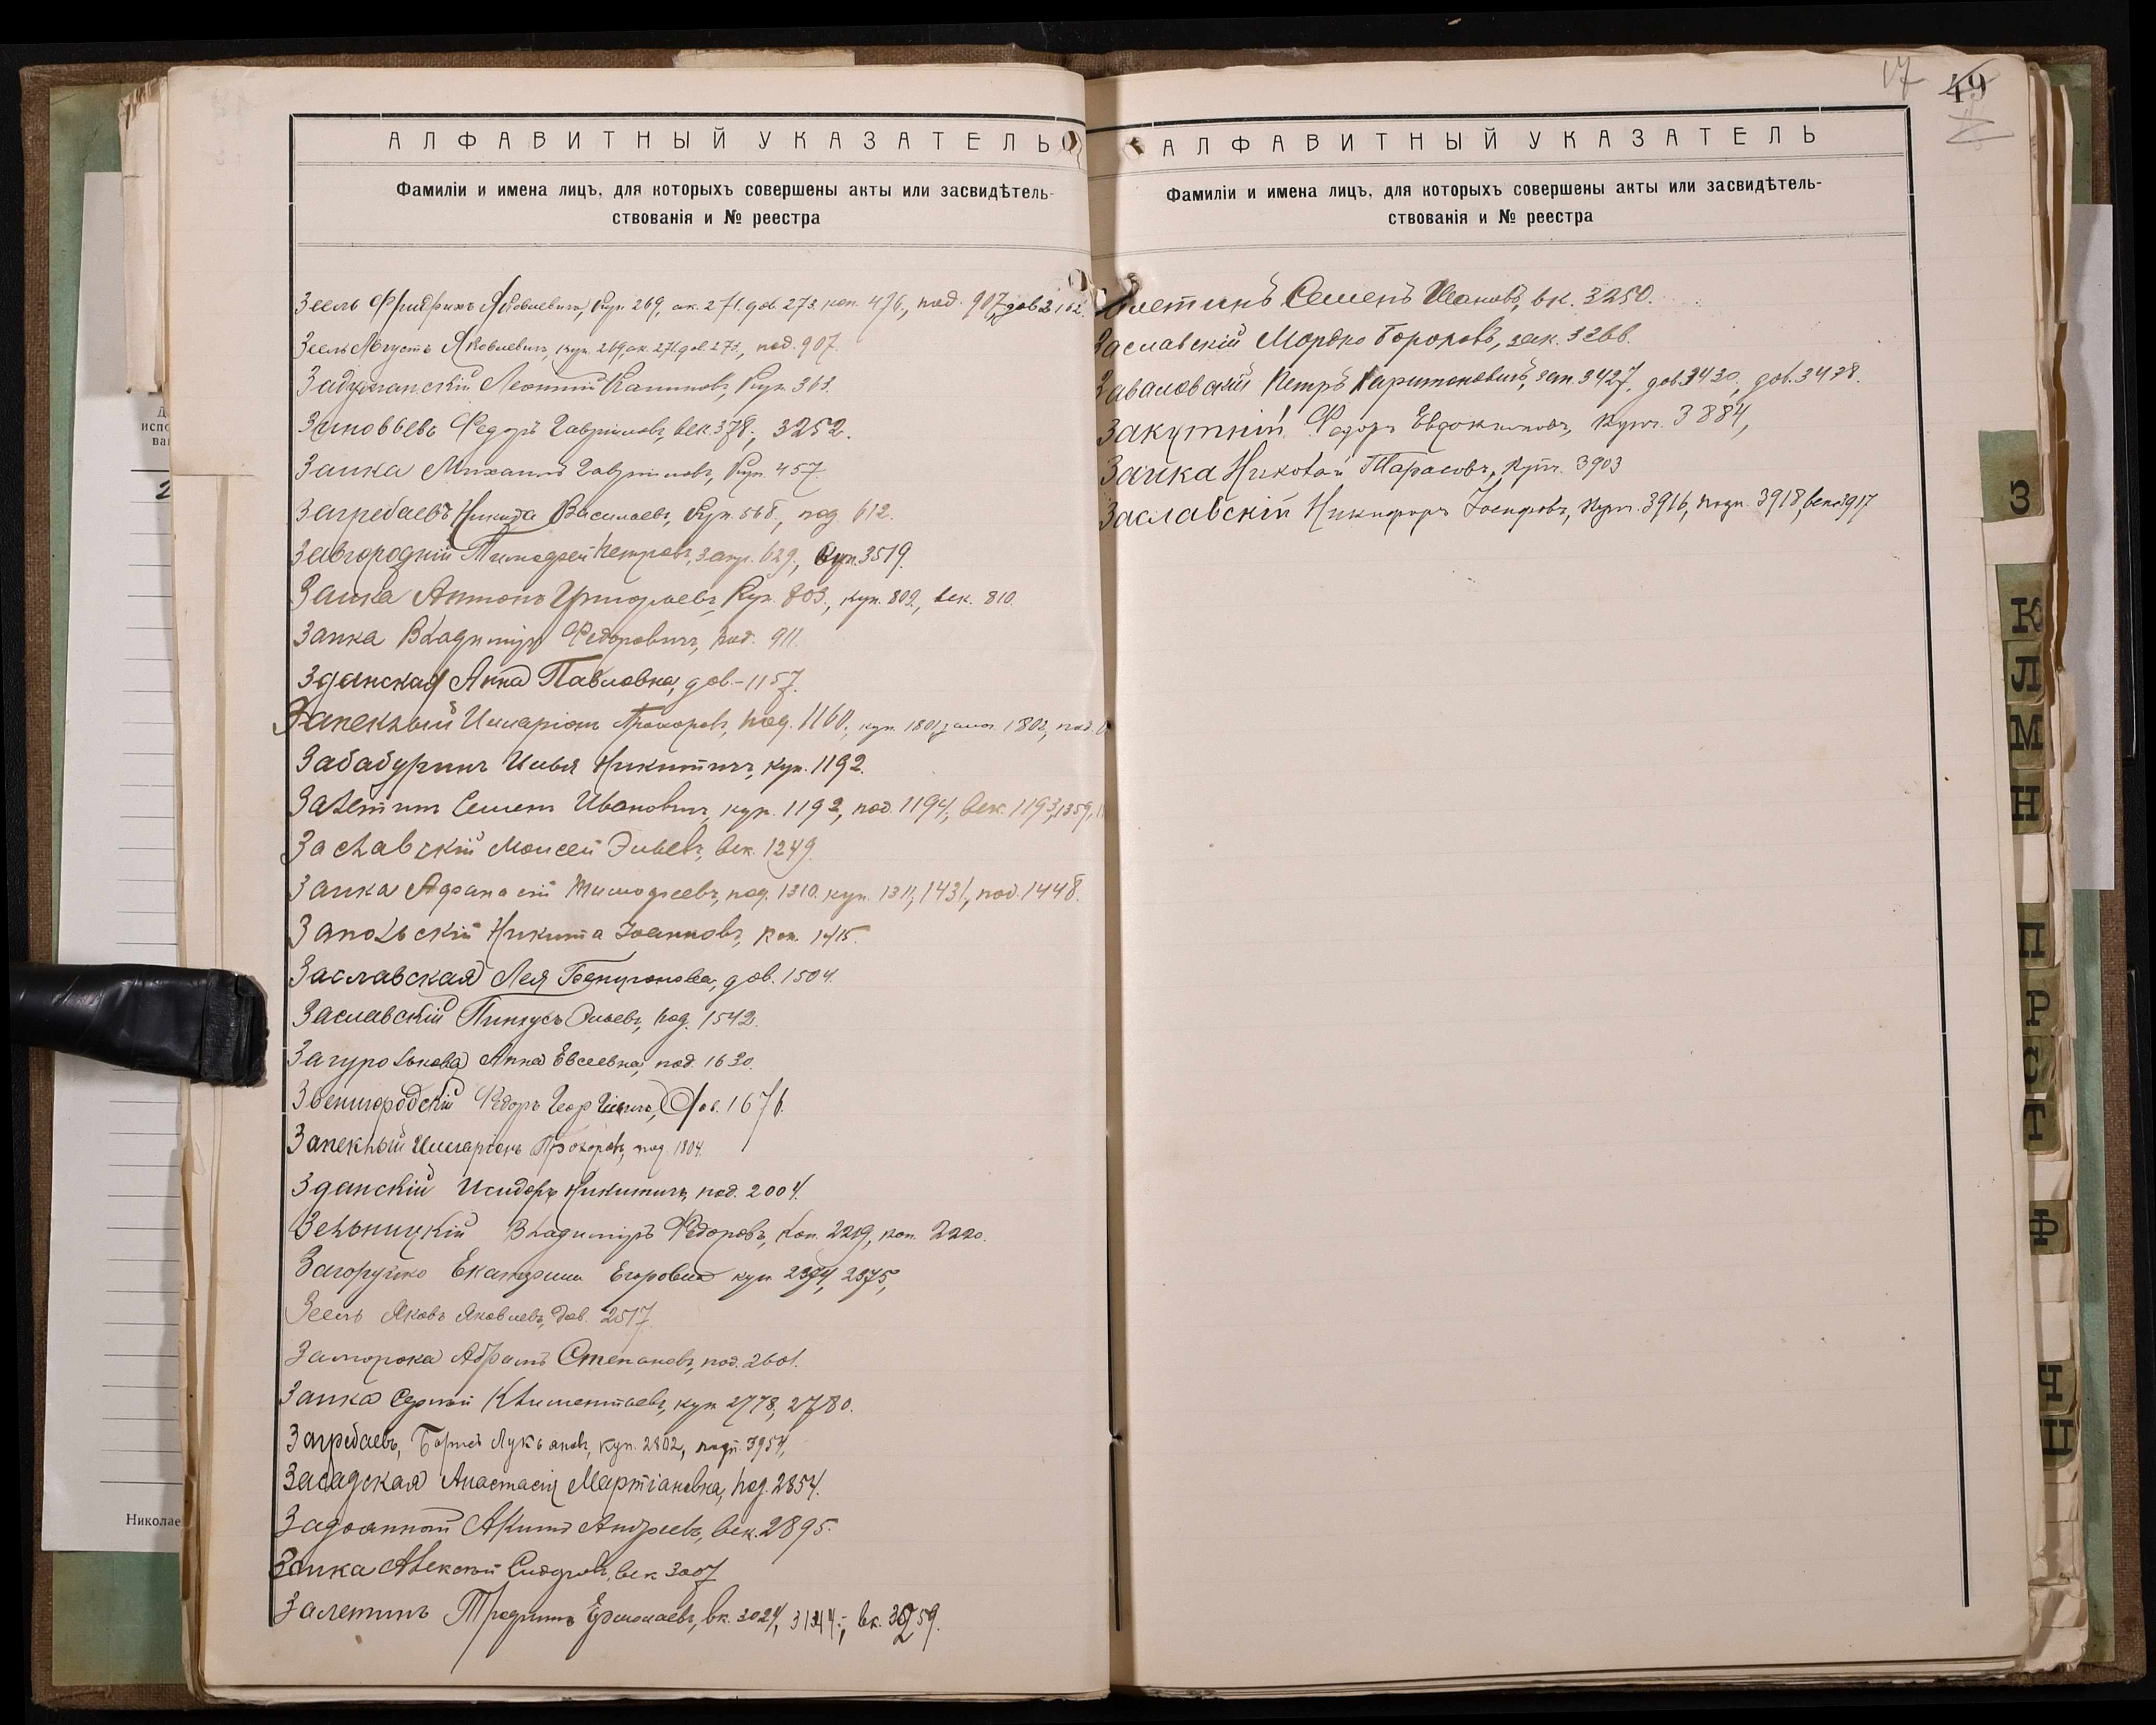 17 49
АЛФАВИТНЫЙ УКАЗАТЕЛЬ
Фамиліи и имена лицъ, для которыхъ совершены акты или засвидѣтель-
ствованія и № реестра
Зеель Фридрихъ Яковлевичъ, Куп. 269, ак. 271. дов. 273. коп. 476., под. 907, дов. 2162.
Зеель Августъ Яковлевичъ, куп. 269, ак. 271. дов. 273., под. 907.
Леонтій куп. 363.
Зиновьевъ Федоръ Гавриловъ, век. 378., 3252.
Заика Михаилъ Гавриловъ, Куп. 457.
Загребаевъ Никита Васильевъ, Куп. 568., под. 612.
Завгородній Тимофей Петровъ, запр. 629., Куп. 3519.
Заика Антонъ Григорьевъ, Куп. 803., куп. 809., век. 810.
Заика Владиміръ Федоровичъ, под. 911.
Зданская Анна Павловна, дов. - 1157.
Запекный Илларіонъ Прохоровъ, под. 1160., куп. 1801, 1802, под.
Забабуринъ Илья Никитичъ, куп. 1192.
Залетинъ Семенъ Ивановичъ, куп. 1192, под. 1194., век. 1193, 1359,
Заславскій Моисей Эльевъ, век. 1249.
Заика Афанасій Тимофеевъ, под. 1310. куп. 1311, 1431, под. 1448.
Запольскій Никита Іоанновъ, коп. 1415.
Заславская Лея дов. 1504.
Заславскій Пинхусъ Эльевъ, под. 1542.
Загуролькова Анна Евсеевна, под. 1630.
Звенигородскій Федоръ 1676.
Запекный Илларіонъ Прохоровъ, под. 1804.
Зданскій Исидоръ Никитичъ, под. 2004.
Зельницкій Владиміръ Федоровъ, Коп. 2219, коп. 2220.
Загоруйко Екатерина Егоровна куп. 2374, 2375,
Зеель Яковъ Яковлевъ, дов. 2517.
Заморока Абрамъ Степановъ, под. 2601.
Заика Сергѣй Климентьевъ, куп. 2778, 2780.
Загребаевъ, Борисъ Лукьяновъ, куп. 2802, подп. 3954,
Засадская Анастасія Мартіановна, под. 2854.
Задоянный Акимъ Андреевъ, век. 2895.
Заика Алексѣй Сидоровъ, век 3007
Залетинъ Трофимъ Ермолаевъ, вк. 3024, 3144., вк. 3259.
АЛФАВИТНЫЙ УКАЗАТЕЛЬ
Фамиліи и имена лицъ, для которыхъ совершены акты или засвидѣтель-
ствованія и № реестра
Залетинъ Семенъ Ивановъ, вк. 3250.
Заславскій Мордко зак. 3266.
Заваловскій Петръ Харитоновичъ, зап. 3427, дов. 3430, дов. 3428.
Закутній Федоръ Евдокимовъ, Купч. 3884,
Заика Николай Тарасовъ, Купч. 3903
Заславскій Никифоръ Іосифовъ, Купч. 3916, подп. 3918, век. 3917
З
К
Л
М
Н
П
Р
С
Т
Ф
Ч
Николае